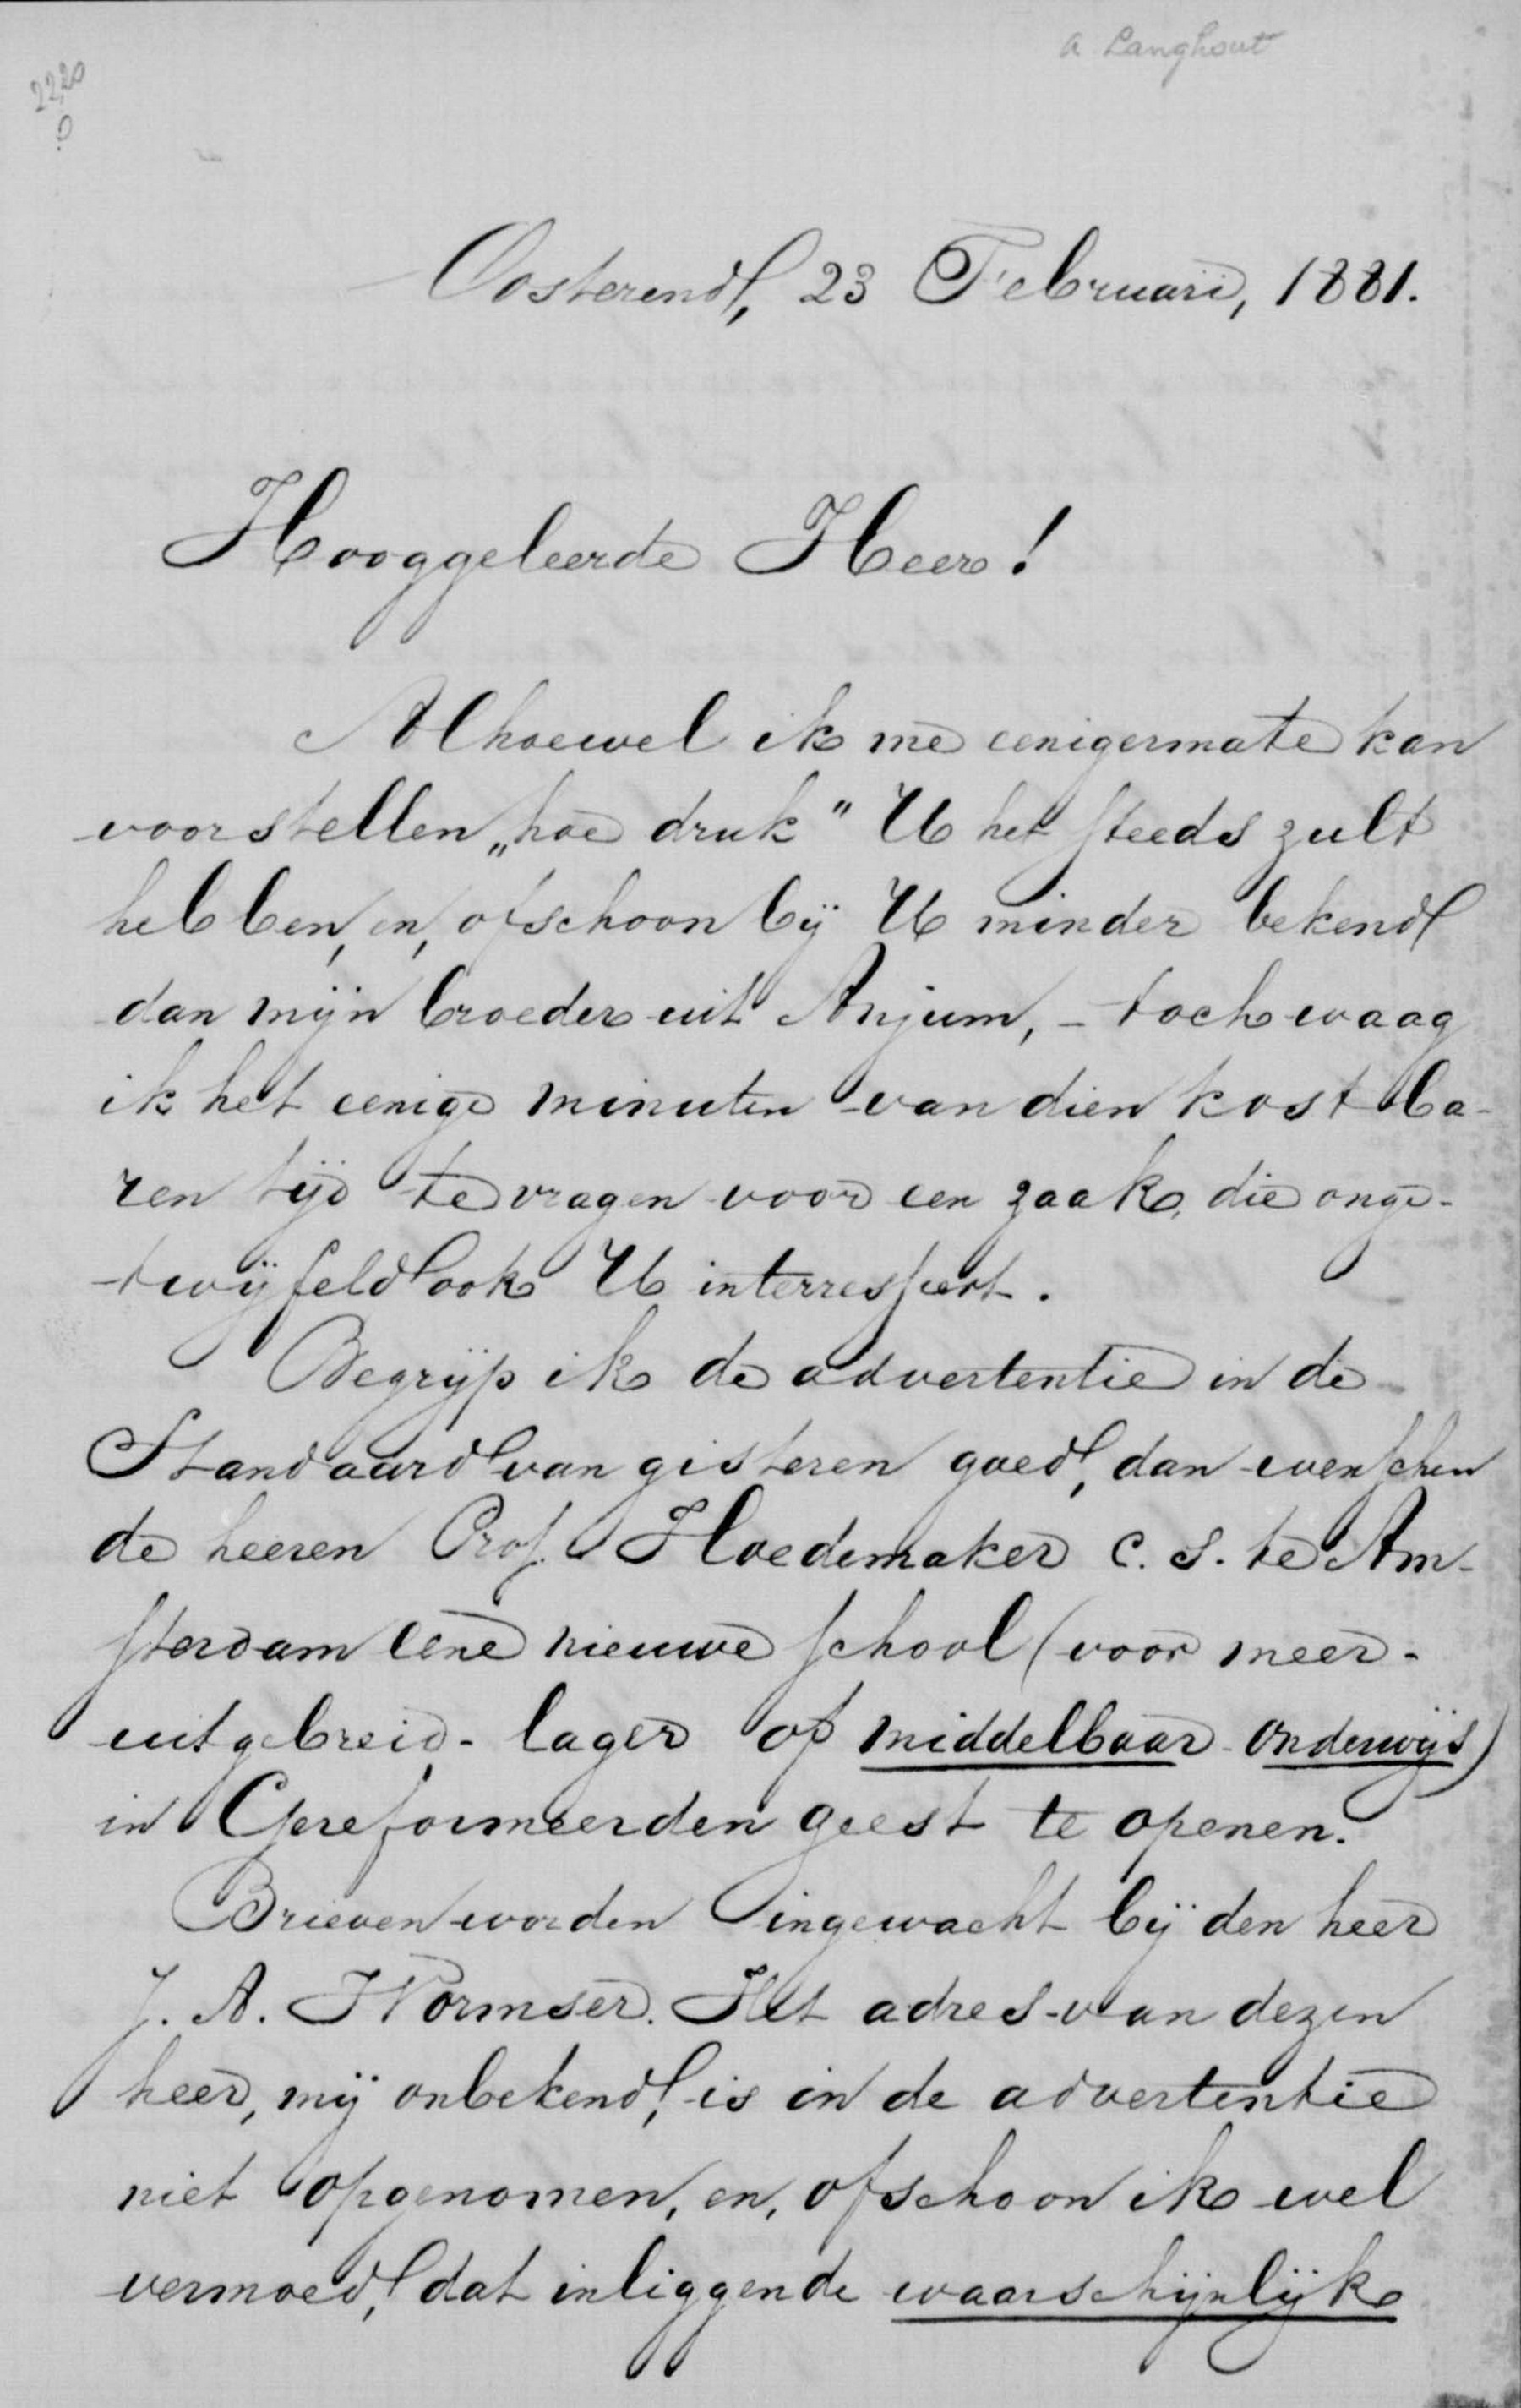 A. Langhout
2220
Oosterend, 23 Februari, 1881.
Hooggeleerde Heer!
Alhoewel ik me eenigermate kan
voorstellen „hoe druk" U het steeds zult
hebben, en, ofschoon bij U minder bekend
dan mijn broeder uit Anjum, - toch waag
ik het eenige minuten van dien kostba-
ren tijd te vragen voor een zaak, die onge-
twijfeld ook U interresseert.
Begrijp ik de advertentie in de
Standaard van gisteren goed, dan wenschen
de heeren Prof. Hoedemaker c. s. te Am-
sterdam eene nieuwe school (voor meer-
uitgebreid-lager of middelbaar onderwijs)
in Gereformeerden geest te openen.
Brieven worden ingewacht bij den heer
J. A. Wormser. Het adres van dezen
heer, mij onbekend, is in de advertentie
niet opgenomen, en, ofschoon ik wel
vermoed, dat inliggende waarschijnlijk